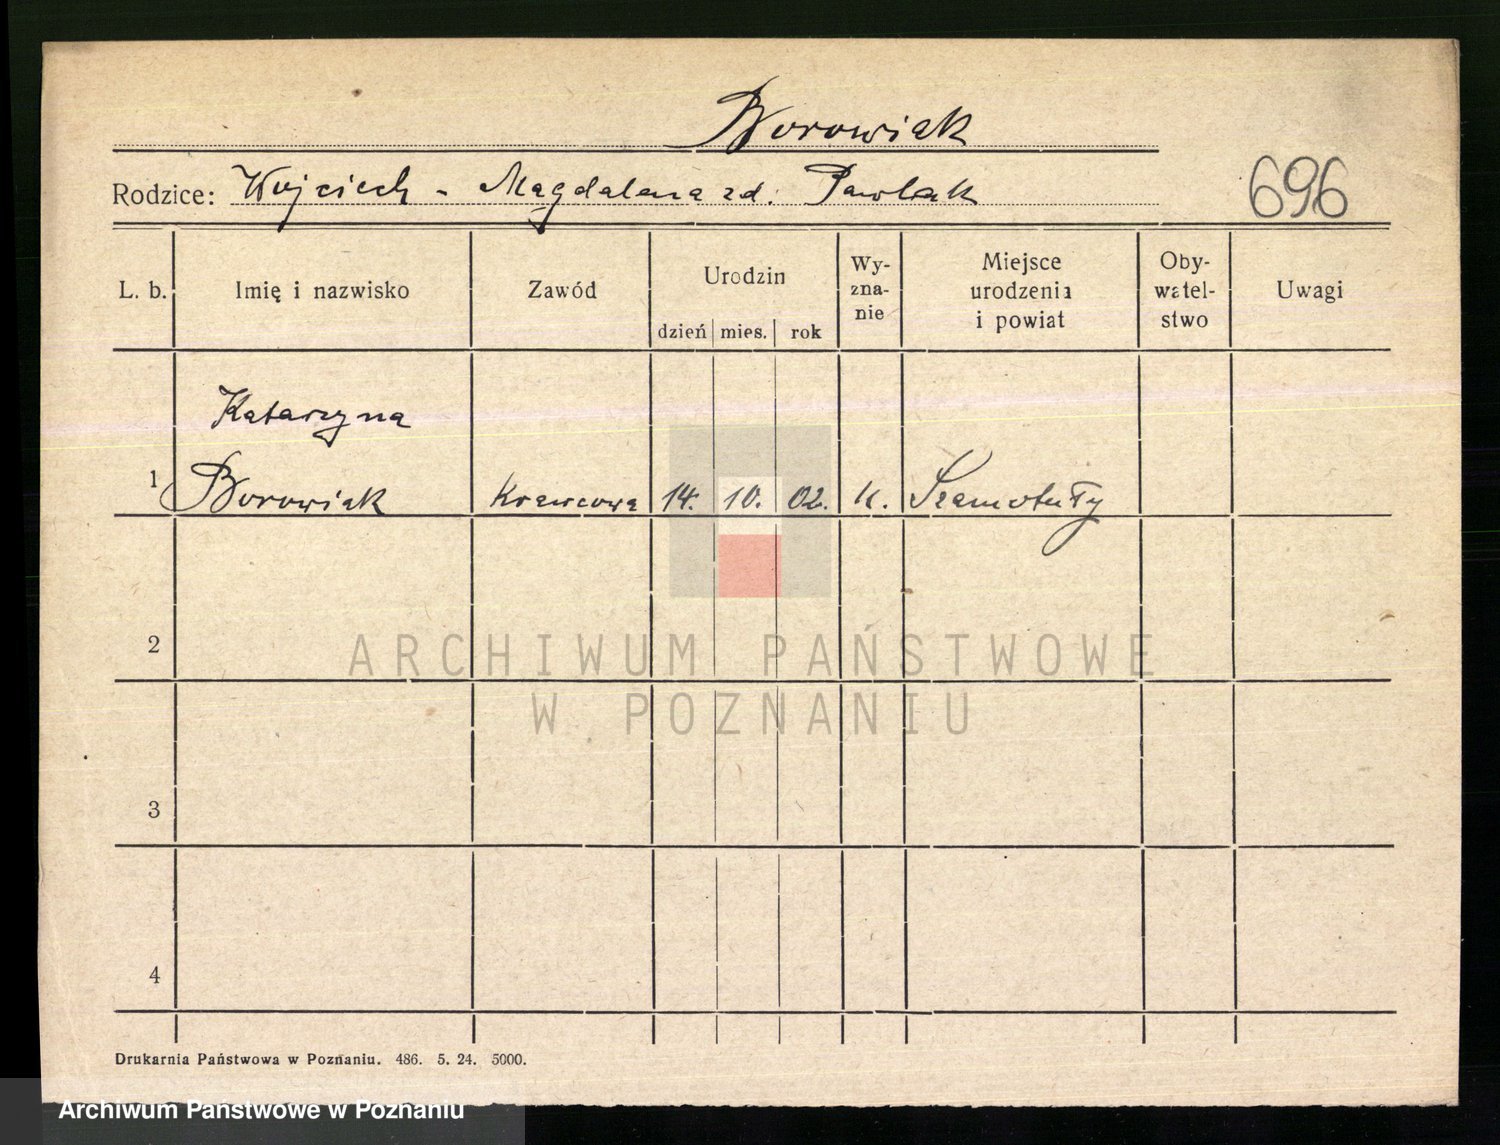 Borowiak
Rodzice: Wojciech - Magdalena zd. Pawlak
696
L. b.
Imię i nazwisko
Zawód
Urodzin
dzień mies. rok
Wy-
zna-
nie
Miejsce
urodzenia
i powiat
Oby-
watel-
stwo
Uwagi
Katarzyna
1 Borowiak Krawcowa 14. 10. 02. k. Szamotuły
2
ARCHIWUM PAŃSTWOWE
W POZNANIU
3
4
Drukarnia Państwowa w Poznaniu. 486. 5. 24. 5000.
Archiwum Państwowe w Poznaniu